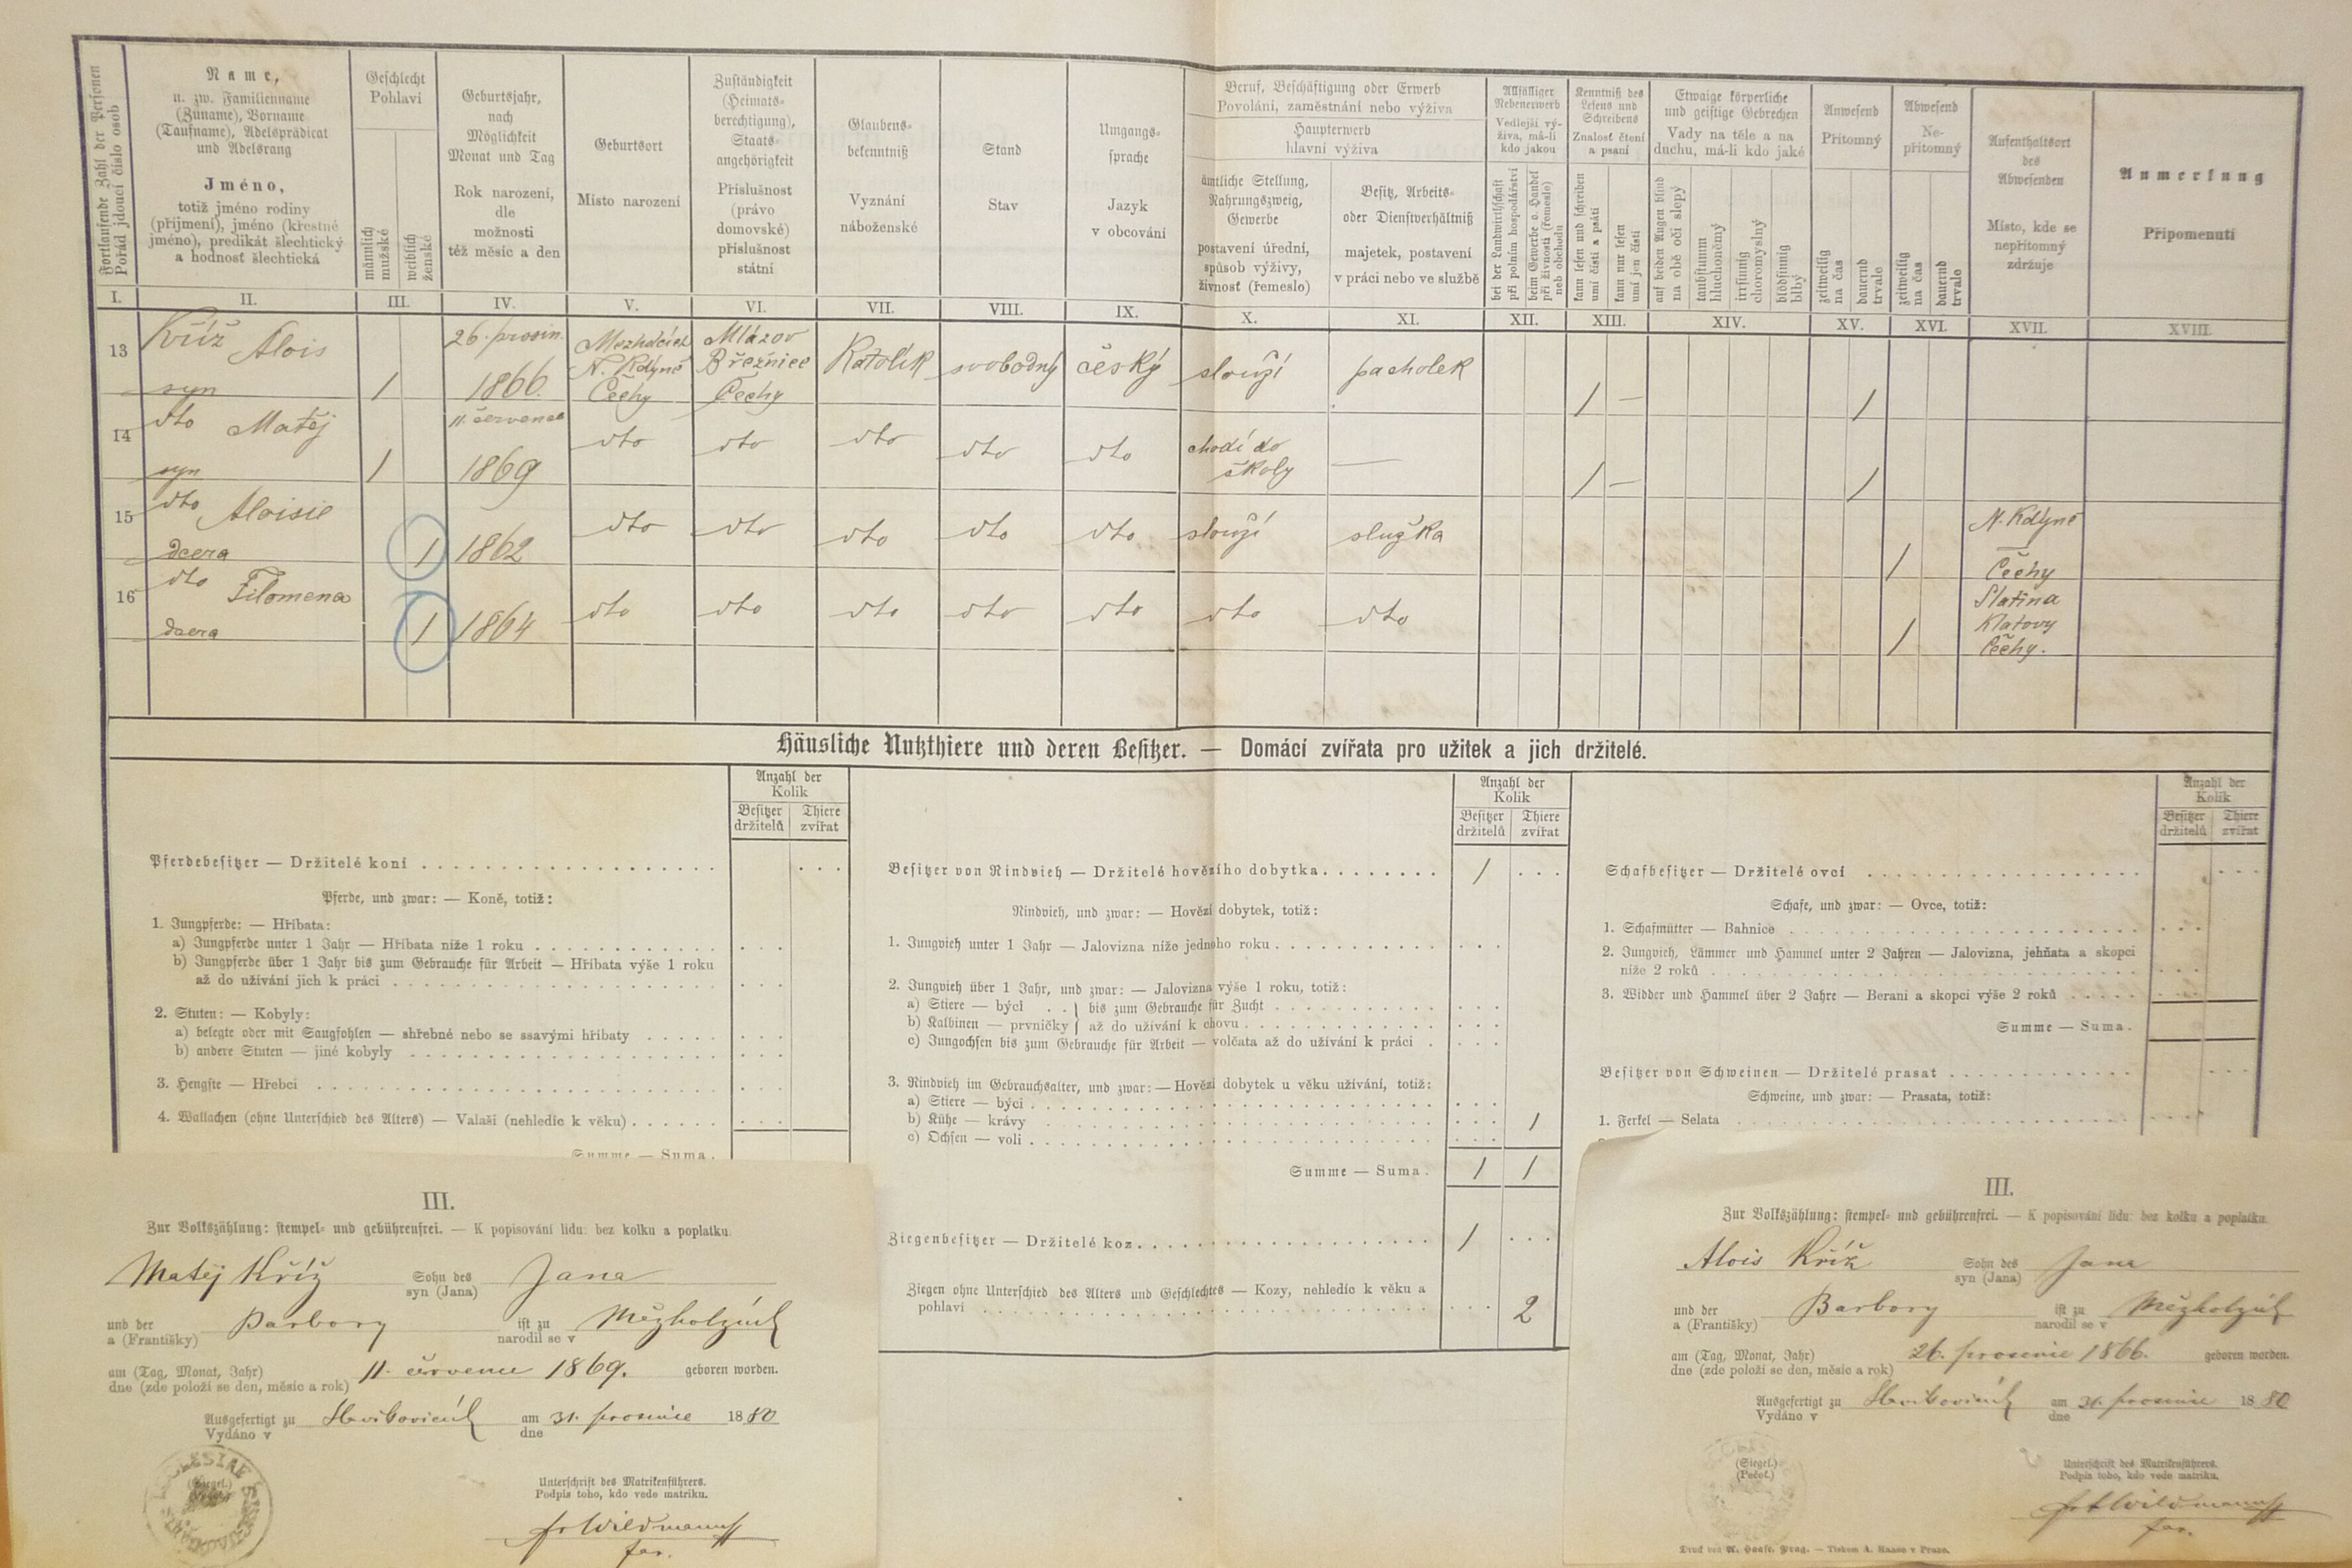 Fortlaufende Zahl der Personen
Pořád jdoucí číslo osob
Name,
u. zw. Familienname
(Zuname), Vorname
(Taufname), Adelsprädicat
und Adelsrang
Jméno,
totiž jméno rodiny
(příjmení), jméno (křestné
jméno), predikát šlechtický
a hodnosť šlechtická
Geschlecht
Pohlaví
männlich
mužské
weiblich
ženské
Geburtsjahr,
nach
Möglichkeit
Monat und Tag
Rok narození,
dle
možnosti
též měsíc a den
Geburtsort
Místo narození
Zuständigkeit
(Heimats-
berechtigung),
Staats-
angehörigkeit
Příslušnost
(právo
domovské)
příslušnost
státní
Glaubens-
bekenntniß
Vyznání
náboženské
Stand
Stav
Umgangs-
sprache
Jazyk
v obcování
Beruf, Beschäftigung oder Erwerb
Povolání, zaměstnání nebo výživa
Haupterwerb
hlavní výživa
ämtliche Stellung,
Nahrungszweig,
Gewerbe
postavení úřední,
spůsob výživy,
živnosť (řemeslo)
Besitz, Arbeits-
oder Dienstverhältniß
majetek, postavení
v práci nebo ve službě
Allfälliger
Nebenerwerb
Vedlejší vý-
živa, má-li
kdo jakou
bei der Landwirthschaft
při polním hospodářství
beim Gewerbe o. Handel
při živnosti (řemesle)
neb obchodu
Kenntniß des
Lesens und
Schreibens
Znalosť čtení
a psaní
kann lesen und schreiben
umí čísti a psáti
kann nur lesen
umí jen čísti
Etwaige körperliche
und geistige Gebrechen
Vady na těle a na
duchu, má-li kdo jaké
auf beiden Augen blind
na obě oči slepý
taubstumm
hluchoněmý
irrsinnig
choromyslný
blödsinnig
blbý
Anwesend
Přítomný
zeitweilig
na čas
dauernd
trvale
Abwesend
Ne-
přítomný
zeitweilig
na čas
dauernd
trvale
Aufenthaltsort
des
Abwesenden
Místo, kde se
nepřítomný
zdržuje
Anmerkung
Připomenutí
I. II. III. IV. V. VI. VII. VIII. IX. X. XI. XII. XIII. XIV. XV. XVI. XVII. XVIII.
13 Kříž Alois 26. prosin. Mezholcích Mlázov
N. Kdýně Březnice Katolík svobodný český slouží pacholek
syn 1 1866. Čechy Čechy 1 — 1
14 dto Matěj 11. července dto dto dto dto dto chodí do
školy —
syn 1 1869 1 — 1
15 dto Aloisie dto dto dto dto dto slouží služka N. Kdýně
dcera 1 1862 1 Čechy
16 dto Filomena dto dto dto dto dto dto dto Slatina
Klatovy
dcera 1 1864 1 Čechy.
Häusliche Nutzthiere und deren Besitzer. — Domácí zvířata pro užitek a jich držitelé.
Anzahl der
Kolik
Besitzer Thiere
držitelů zvířat
Pferdebesitzer — Držitelé koní
Pferde, und zwar: — Koně, totiž:
1. Jungpferde: — Hříbata:
a) Jungpferde unter 1 Jahr — Hříbata níže 1 roku
b) Jungpferde über 1 Jahr bis zum Gebrauche für Arbeit — Hříbata výše 1 roku
až do užívání jich k práci
2. Stuten: — Kobyly:
a) belegte oder mit Saugfohlen — shřebné nebo se ssavými hříbaty
b) andere Stuten — jiné kobyly
3. Hengste — Hřebci
4. Wallachen (ohne Unterschied des Alters) — Valaši (nehledíc k věku)
Summe — Suma.
Anzahl der
Kolik
Besitzer Thiere
držitelů zvířat
Besitzer von Rindvieh — Držitelé hovězího dobytka 1
Rindvieh, und zwar: — Hovězí dobytek, totiž:
1. Jungvieh unter 1 Jahr — Jalovizna níže jednoho roku
2. Jungvieh über 1 Jahr, und zwar: — Jalovizna výše 1 roku, totiž:
a) Stiere — býci . . } bis zum Gebrauche für Zucht
b) Kalbinen — prvničky } až do užívání k chovu
c) Jungochsen bis zum Gebrauche für Arbeit — volčata až do užívání k práci
3. Rindvieh im Gebrauchsalter, und zwar: — Hovězí dobytek u věku užívání, totiž:
a) Stiere — býci
b) Kühe — krávy 1
c) Ochsen — voli
Summe — Suma. 1 1
Ziegenbesitzer — Držitelé koz 1
Ziegen ohne Unterschied des Alters und Geschlechtes — Kozy, nehledíc k věku a
pohlaví 2
Anzahl der
Kolik
Besitzer Thiere
držitelů zvířat
Schafbesitzer — Držitelé ovcí
Schafe, und zwar: — Ovce, totiž:
1. Schafmütter — Bahnice
2. Jungvieh, Lämmer und Hammel unter 2 Jahren — Jalovizna, jehňata a skopci
níže 2 roků
3. Widder und Hammel über 2 Jahre — Berani a skopci výše 2 roků
Summe — Suma.
Besitzer von Schweinen — Držitelé prasat
Schweine, und zwar: — Prasata, totiž:
1. Ferkel — Selata
III.
Zur Volkszählung: stempel- und gebührenfrei. — K popisování lidu: bez kolku a poplatku.
Matěj Kříž Sohn des
syn (Jana) Jana
und der
a (Františky) Barbory ist zu
narodil se v Mězholzích
am (Tag, Monat, Jahr)
dne (zde položí se den, měsíc a rok) 11. července 1869. geboren worden.
Ausgefertigt zu
Vydáno v Slavikovicích am
dne 31. prosince 1880
(Siegel.)
Unterschrift des Matrikenführers.
Podpis toho, kdo vede matriku.
Fr Wildmann
far.
III.
Zur Volkszählung: stempel- und gebührenfrei. — K popisování lidu: bez kolku a poplatku.
Alois Kříž Sohn des
syn (Jana) Jana
und der
a (Františky) Barbory ist zu
narodil se v Mězholzích
am (Tag, Monat, Jahr)
dne (zde položí se den, měsíc a rok) 26. prosince 1866. geboren worden.
Ausgefertigt zu
Vydáno v Slavikovicích am
dne 31. prosince 1880
(Siegel.)
(Pečeť.)
Unterschrift des Matrikenführers.
Podpis toho, kdo vede matriku.
Fr Wildmann
far.
Druck von A. Haase, Prag. — Tiskem A. Haase v Praze.